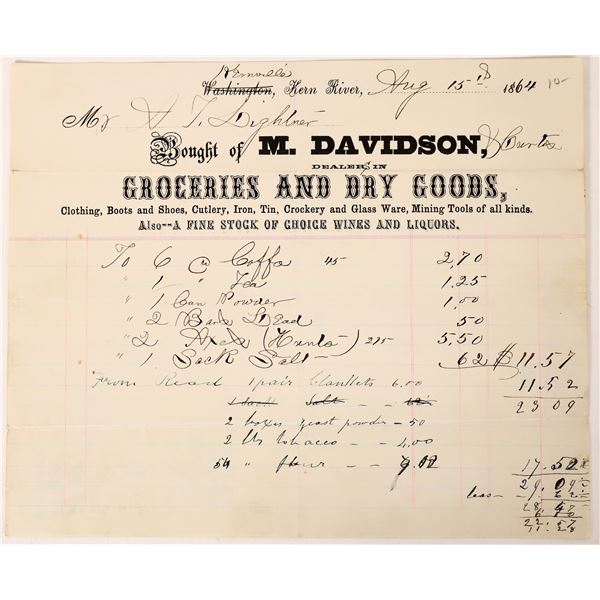 Kernville
Washington, Kern River, Aug 15th 1864
Mr A T Lightner
Bought of M. DAVIDSON, & Curtis
DEALERS IN
GROCERIES AND DRY GOODS,
Clothing, Boots and Shoes, Cutlery, Iron, Tin, Crockery and Glass Ware, Mining Tools of all kinds.
Also--A FINE STOCK OF CHOICE WINES AND LIQUORS.
To 6 Coffe 45 2,70
" 1 " Tea 1.25
" 1 Can Powder 1,00
" 2 Bars Lead 50
" 2 Axes (Hunts) 275 5,50
" 1 Sack Salt 62 $11.57
From Read 1 pair blankets 6.00 11.52
1 sack Salt - - 62 23 09
2 boxes yeast powder - 50
2 lbs tobacco - - 4.00
54 " flour - - 9.12 17.52
29.09
less -